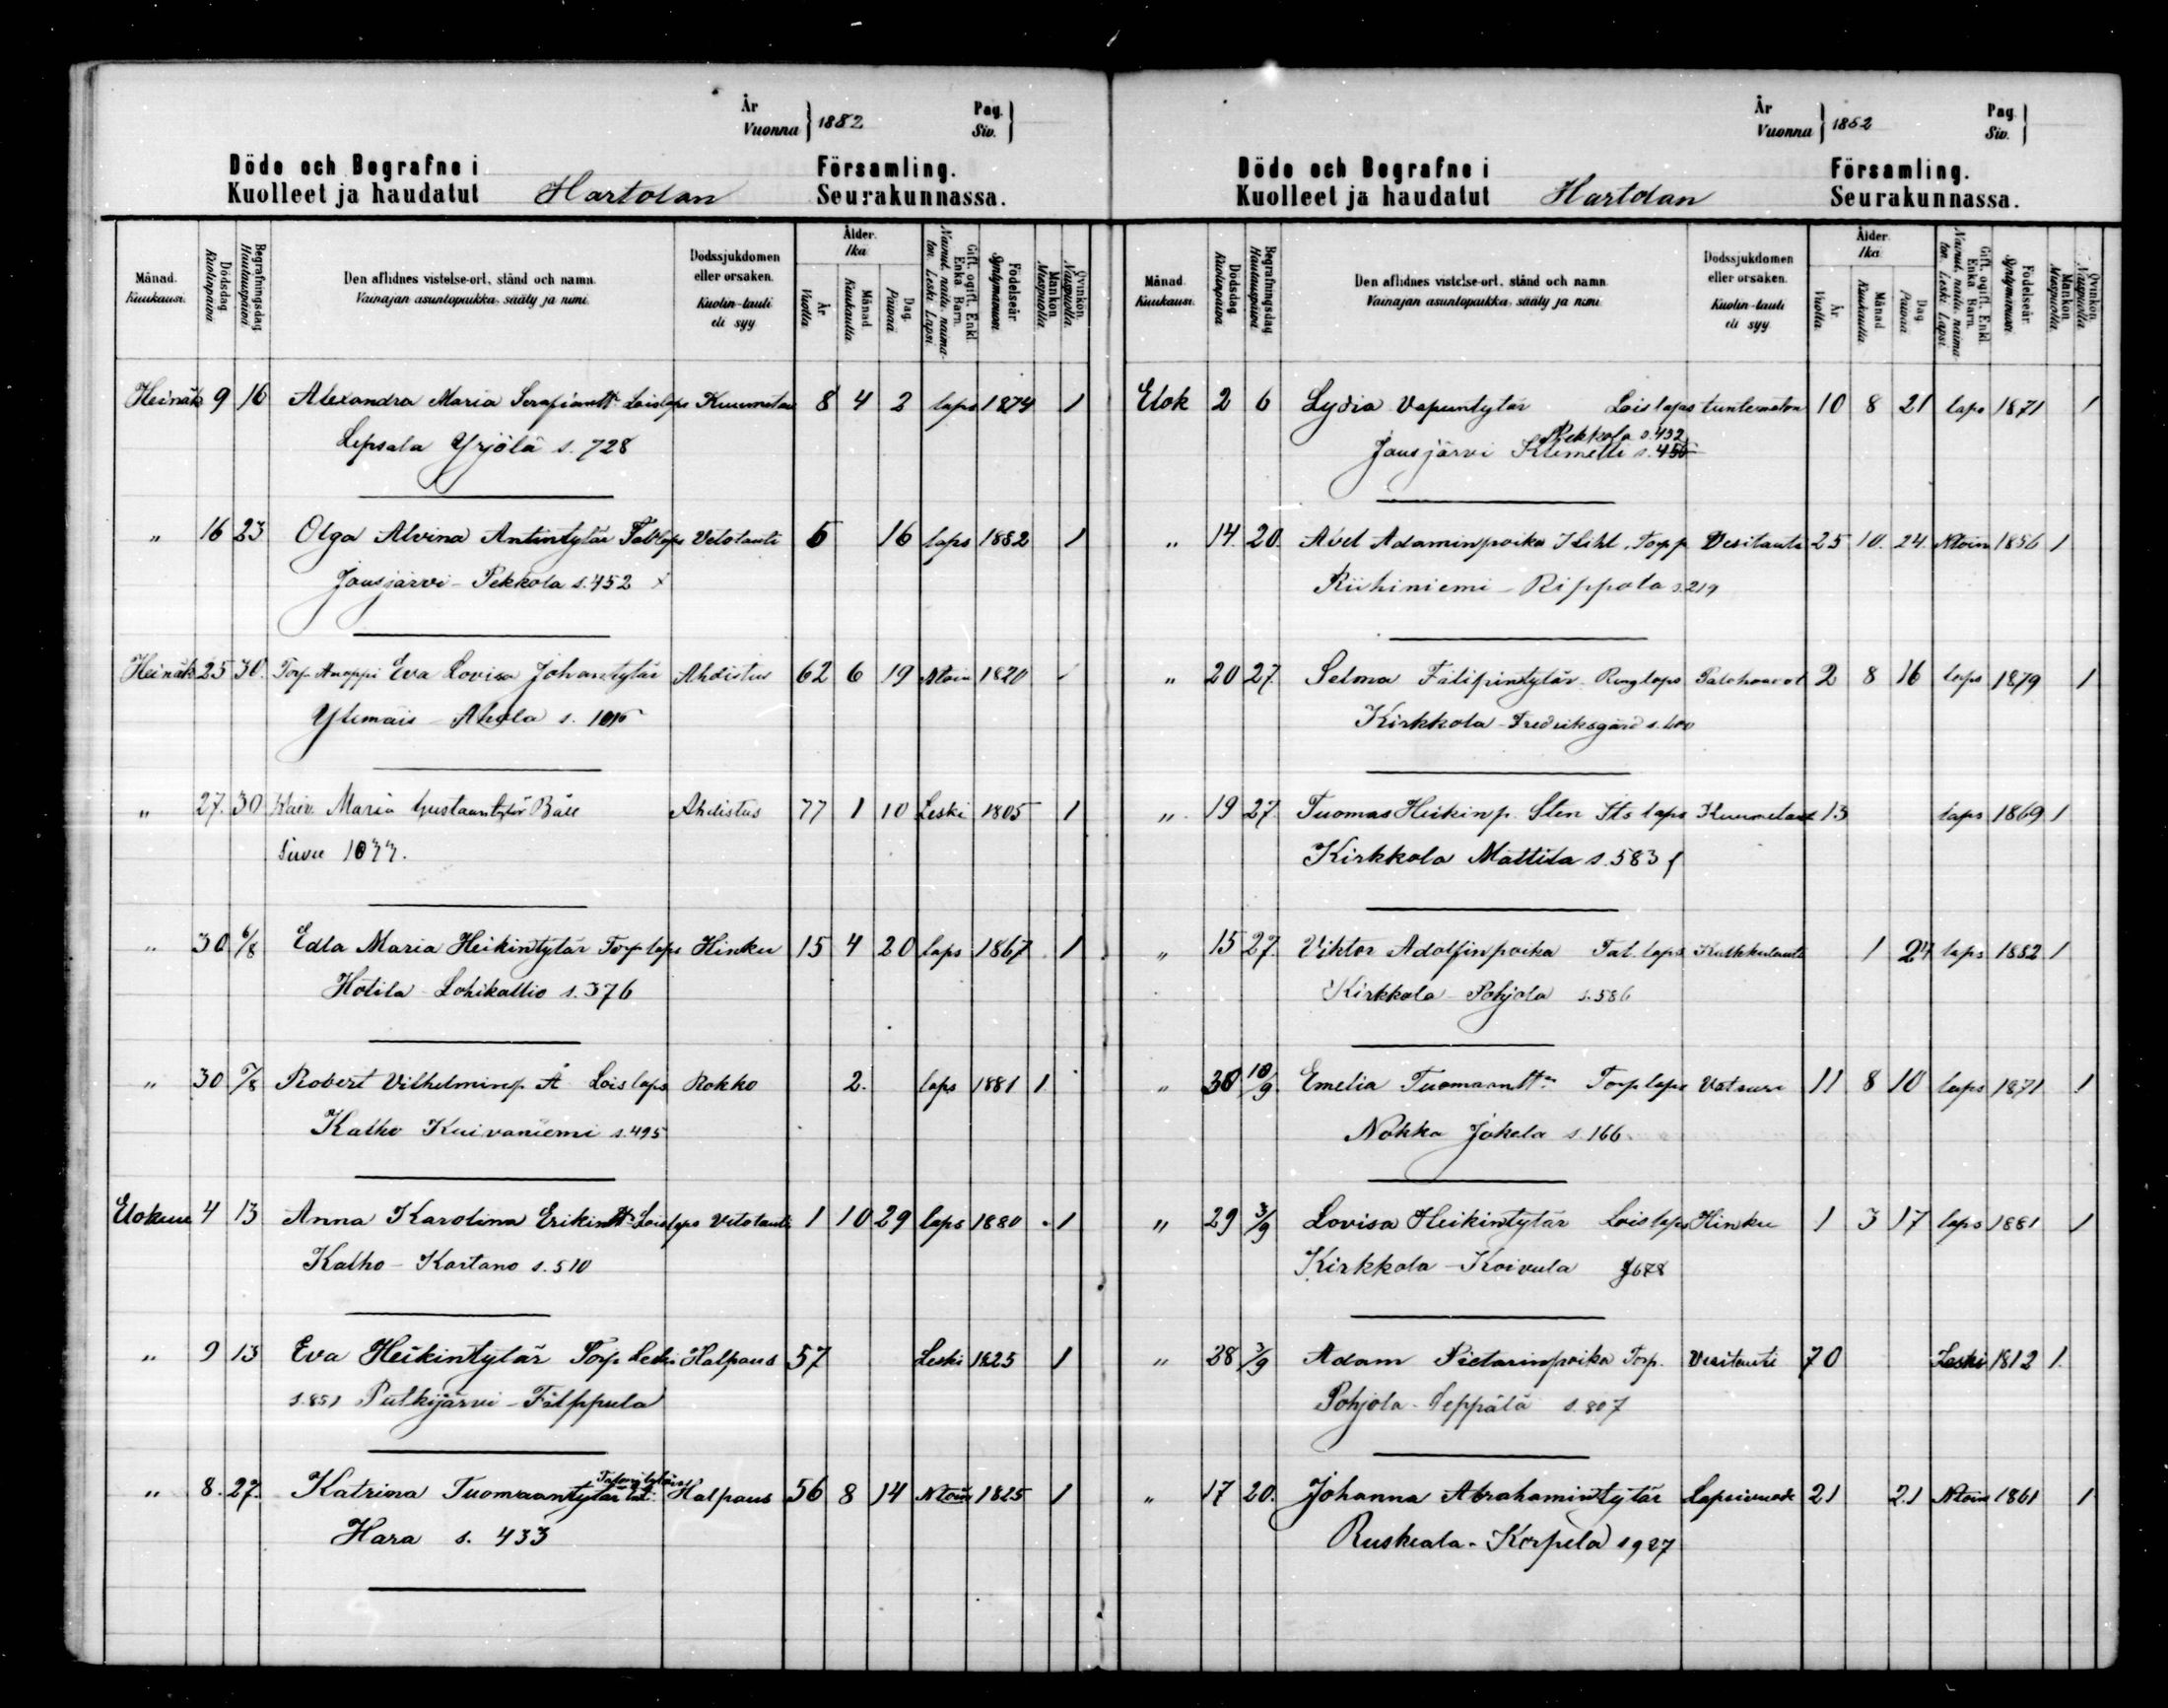 År
Vuonna } 1882 Pag.
Siv. }
Döde och Begrafne i Församling.
Kuolleet ja haudatut Hartolan Seurakunnassa.
Månad. Kuukausi. Dödsdag. Kuolinpäivä Begrafningsdag Hautauspäivä Den aflidnes vistelse-ort, stånd och namn. Vainajan asuntopaikka, sääty ja nimi. Dödssjukdomen eller orsaken. Kuolin-tauti eli syy Ålder. Ikä År. Vuotta. Månad. Kuukautta. Dag. Päivää Gift, ogift, Enkl. Enka. Barn. Nainut, naitu, naimaton. Leski. Lapsi. Födelseår. Syntymävuosi. Mankön. Miespuolia. Qvinkön. Naispuolia.
Heinäk 9 16 Alexandra Maria Serafiantr Loislaps Kuumetau 8 4 2 laps 1874 1
Lepsala Yrjölä s. 728
" 16 23 Olga Alvina Antintytär Tallaps Vetotauti 5 16 laps 1882 1
Jousjärvi - Pekkola s. 452 x
Heinäk 25 30. Torp. Eva Lovisa Johantytär Ahdistus 62 6 19 Ntoin 1820
Ylemäis - Ahola s.
" 27. 30 Maria Gustaantytär Båll Ahdistus 77 1 10 Leski 1805 1
Sivu 1077.
" 30 6/8 Edla Maria Heikintytär Torp laps Hinku 15 4 20 laps 1867 1
Hotila Lohikallio s. 376
" 30 7/8 Robert Vilhelminp. Ä Lois laps Rokko 2. laps 1881 1
Kalho Kuivaniemi s. 495
Elokuu 4 13 Anna Karolina Erikintr Loislaps Vetotauti 1 10 29 laps 1880 1
Kalho - Kartano s. 510
" 9 13 Eva Heikintytär Torp Leski Halpaus 57 Leski 1825 1
s. 851 Putkijärvi - Filppula
" 8. 27. Katrina Tuomaantytär Halpaus 56 8 14 Ntoin 1825 1
Hara s. 433
År
Vuonna } 1882 Pag.
Siv. }
Döde och Begrafne i Församling.
Kuolleet ja haudatut Hartolan Seurakunnassa.
Månad. Kuukausi. Dödsdag. Kuolinpäivä Begrafningsdag Hautauspäivä Den aflidnes vistelse-ort, stånd och namn. Vainajan asuntopaikka, sääty ja nimi. Dödssjukdomen eller orsaken. Kuolin-tauti eli syy Ålder. Ikä År. Vuotta. Månad. Kuukautta. Dag. Päivää Gift, ogift, Enkl. Enka. Barn. Nainut, naitu, naimaton. Leski. Lapsi. Födelseår. Syntymävuosi. Mankön. Miespuolia. Qvinkön. Naispuolia.
Elok 2 6 Lydia Vapuntytär Loislaps tuntematon 10 8 21 laps 1871 1
Pekkola s. 432
Jousjärvi Klemetti s. 450
" 14. 20. Abel Adaminpoika Torp Vesitauti 25 10. 24 Ntoin 1856 1
Riihiniemi - Rippola s. 219
" 20 27. Selma Filipintytär Renglaps Palohaavat 2 8 16 laps 1879 1
Kirkkola - Fredriksgård s. 600
" 19 27. Tuomas Heikinp. Sten Its laps Kuumetaut 13 laps 1869 1
Kirkkola Mattila s. 583
" 15 27. Viktor Adolfinpoika Tal. laps Kurkkutauti 1 24 laps 1882 1
Kirkkola Pohjola s. 586
" 30 10/9 Emelia Tuomaantr Torp laps Vatsuri 11 8 10 laps 1871 1
Nokka Jokela s. 166
" 29 3/9 Lovisa Heikintytär Loislaps Hinku 1 3 17 laps 1881 1
Kirkkola - Koivula 678
" 28 3/9 Adam Pietarinpoika Torp. Vesitauti 70 Leski 1812 1.
Pohjola - Leppälä s. 807
" 17 20. Johanna Abrahamintytär Lapsivuode 21 21 Ntoin 1861 1
Ruskeala - Korpela s 927